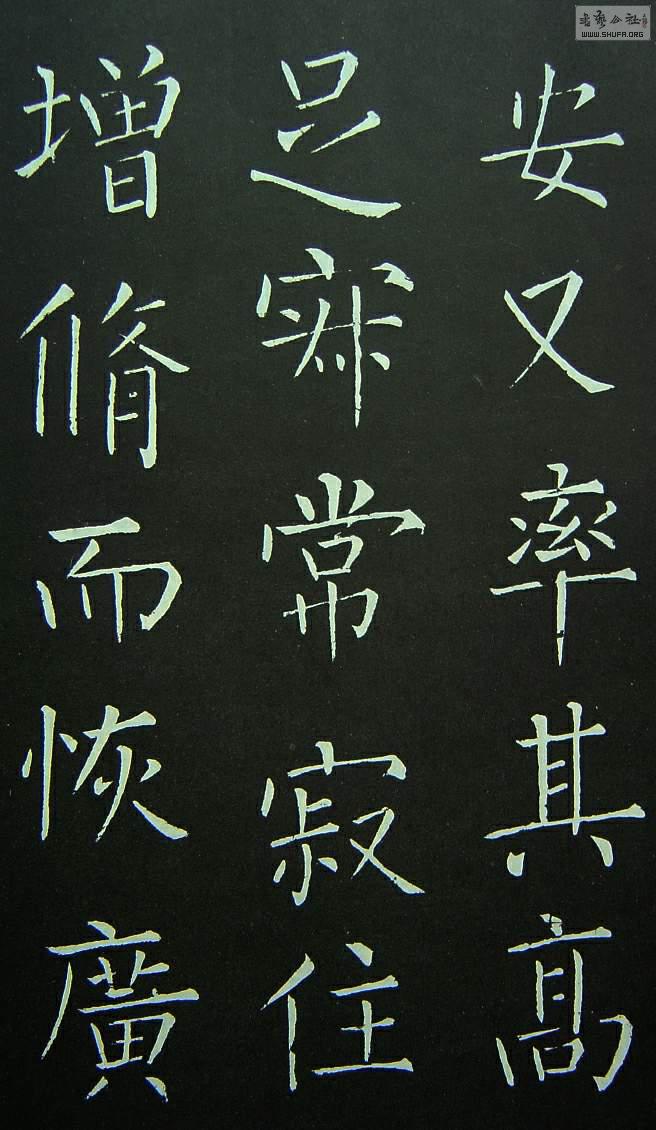 安又率其高
足常寂住
增脩而恢廣
書藝公社
WWW.SHUFA.ORG